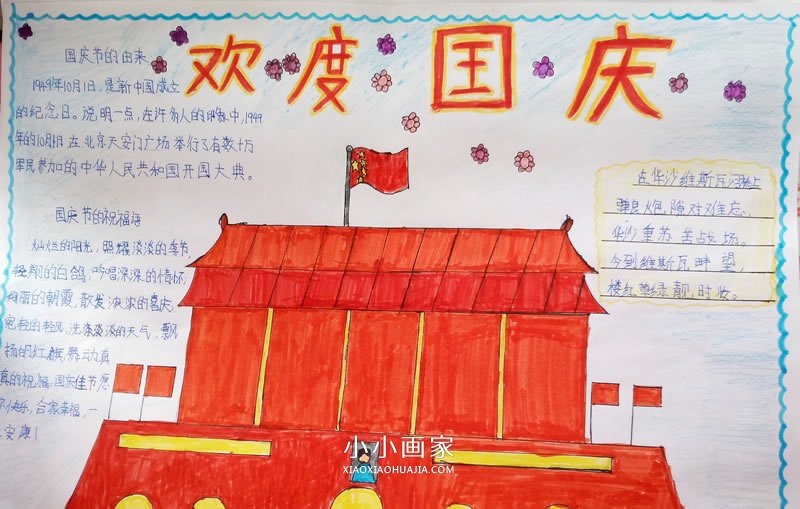 欢度国庆
国庆节的由来
1949年10月1日,是新中国成立
的纪念日。说明一点,在许多人的印象中,1949
年的10月1日在北京天安门广场举行了有数十万
军民参加的中华人民共和国开国大典。
国庆节的祝福语
灿烂的阳光,照耀淡淡的季节,
轻翔的白鸽,吟唱深深的情怀;
绚丽的朝霞,散发泱泱的喜庆;
宛轻的轻风,洗涤淡淡的天气,飘
扬的红旗,舞动真
真的祝福:国庆佳节愿
你快乐,合家幸福,一
安康!
在华沙维斯瓦河畔上
弹良火炮,隙对难忘。
华沙重苏苦战场。
今到维斯瓦畔望,
楼红草绿靓时妆。
小小画家
XIAOXIAOHUAJIA.COM